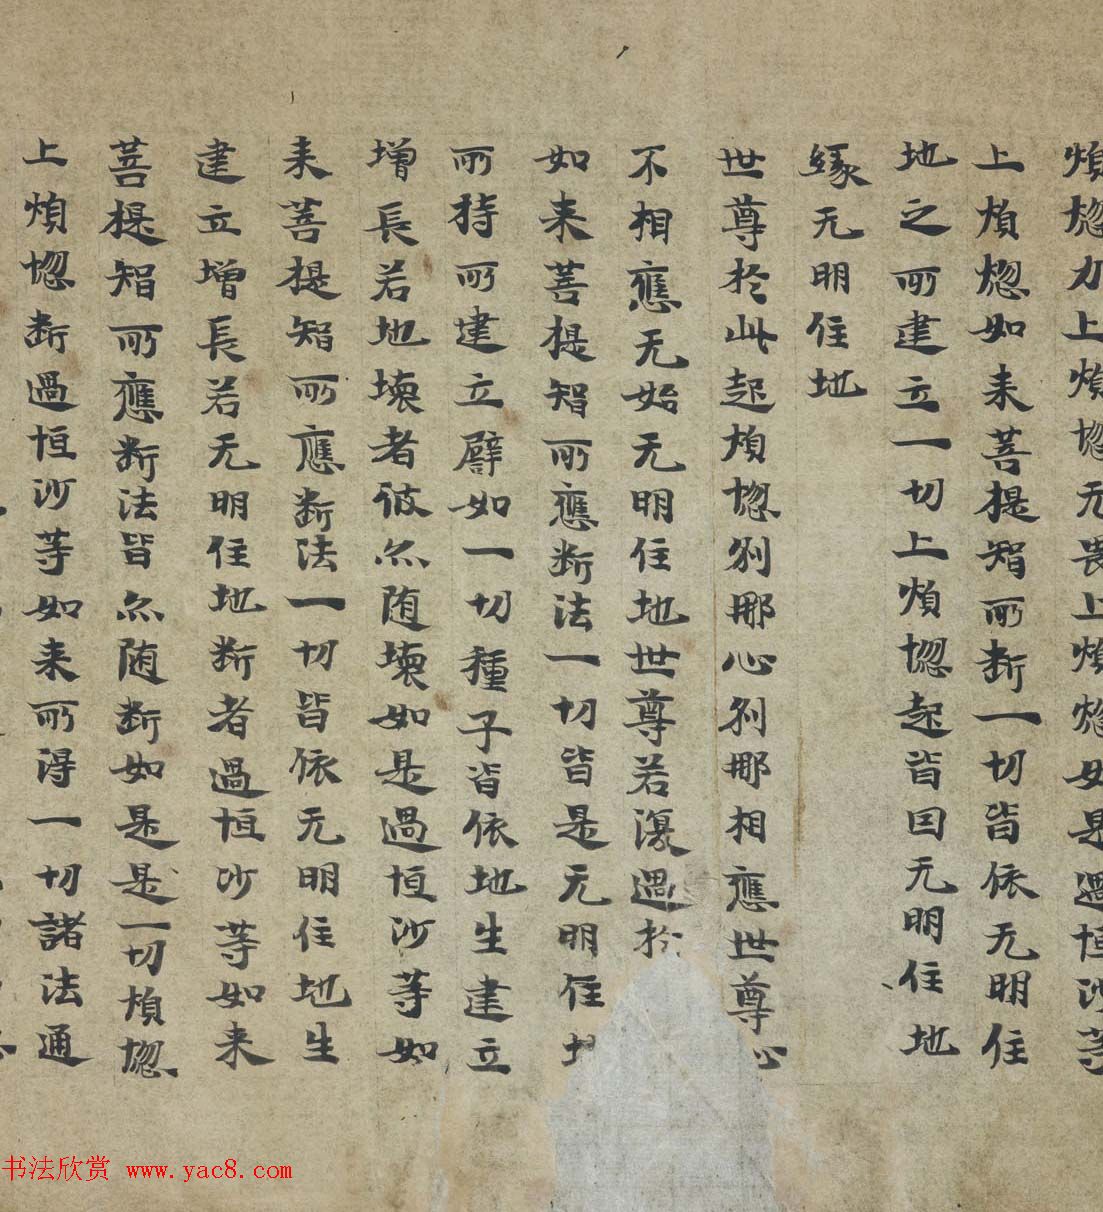 煩惚力上煩惚无畏上煩惚如是過恒沙等
上煩惚如来菩提智所断一切皆依无明住
地之所建立一切上煩惚起皆因无明住地
緣无明住地
世尊於此起煩惚刹那心刹那相應世尊心
不相應无始无明住地世尊若復過於
如来菩提智所應断法一切皆是无明住地
所持所建立譬如一切種子皆依地生建立
增長若地壞者彼亦随壞如是過恒沙等如
来菩提智所應断法一切皆依无明住地生
建立增長若无明住地断者過恒沙等如来
菩提智所應断法皆亦随断如是是一切煩惚
上煩惚断過恒沙等如来所得一切諸法通
书法欣赏 www.yac8.com